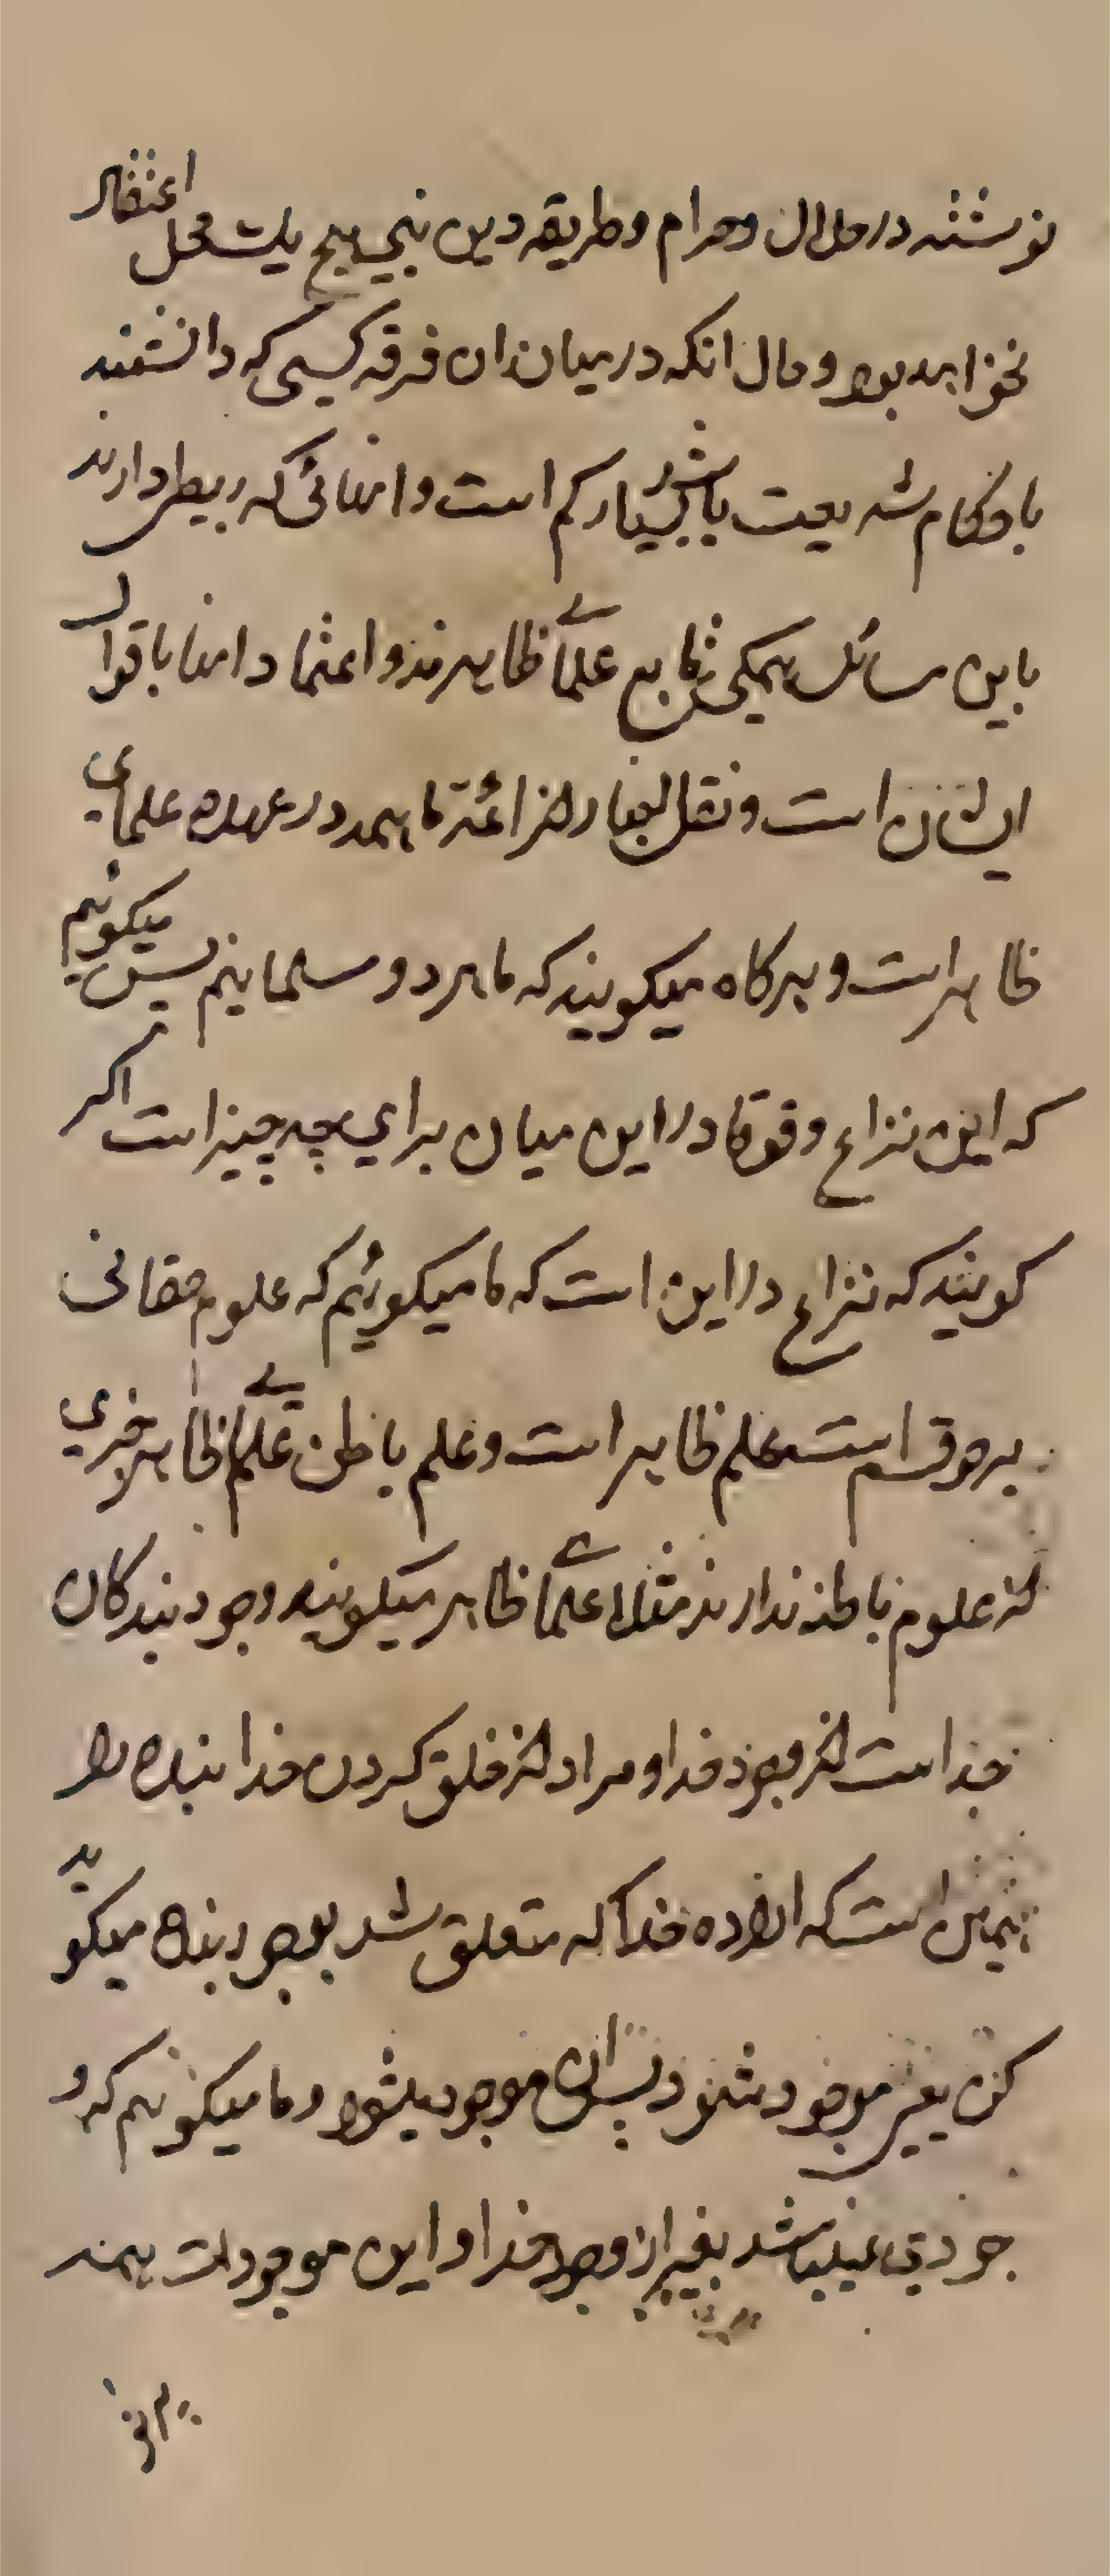 نوشته در حلال و حرام و طریقه دین نبی هیچ یک محل اعتقاد
نخواهد بود و حال انکه در میان ان فرقه کسی که دانشمند
باحکام شریعت باشد بسیار کم است و انهائی که ربطی دارند
باین مسائل همکی تابع علمای ظاهرند و اعتماد انها باقوال
ایشان است و نقل اخبار از ائمه ما همه در عهده علمای
ظاهر است و هرکاه میکویند که ما هر دو مسلمانیم پس میکوئیم
که این نزاع و غوغا در این میان برای چه چیز است اکر
کویند که نزاع در این است که ما میکوئیم که علوم حقانی
بر دو قسم است علم ظاهر است و علم باطن علمای ظاهر خبری
از علوم باطنه ندارند مثلا علمای ظاهر میکویند وجود بندکان
خدا است از وجود خدا و مراد از خلق کردن خدا بنده را
همین است که اراده خدا که متعلق شد بوجود بنده میکوید
کن یعنی موجود شو پس ان موجود میشود و ما میکوئیم که و
جودی نمیباشد بغیر از وجود خدا و این موجودات همه